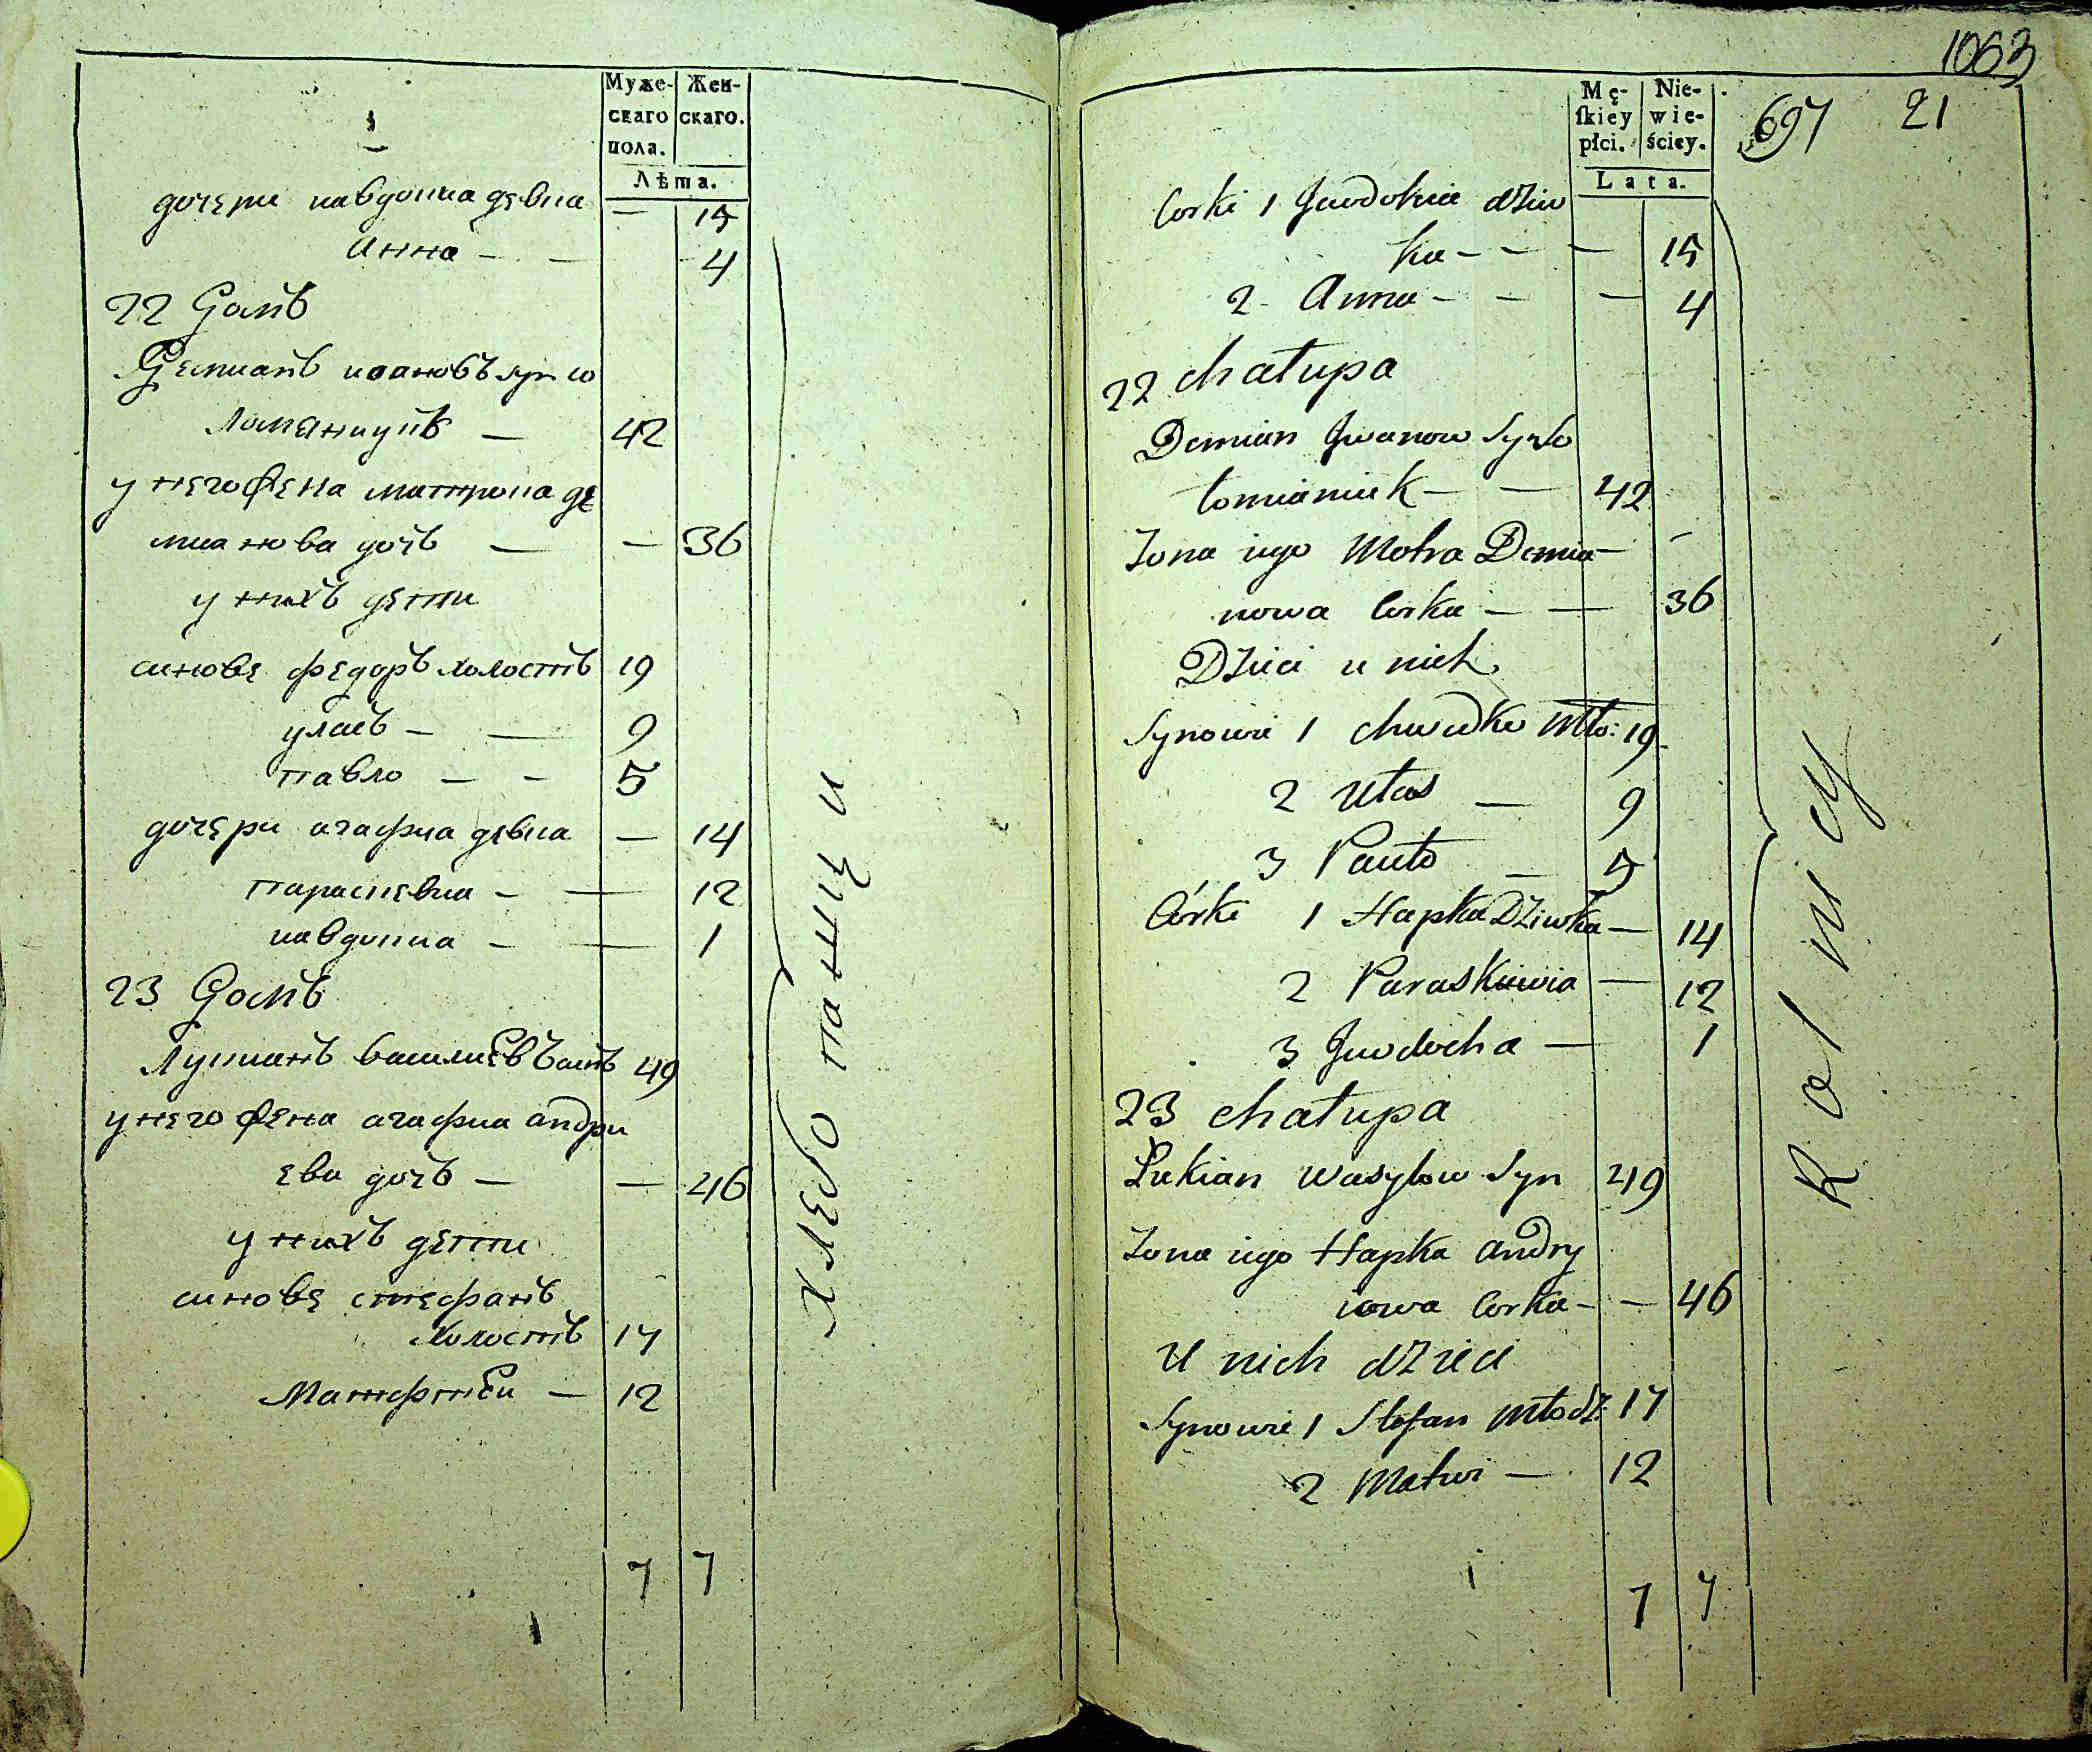 Муже- Жен-
скаго скаго.
пола.
Лѣта.
дочери иавдокиа девка — 15
Анна — — 4
22 Домъ
Демианъ ивановъ syn ło
ломянчукъ — 42
у него жена матрона де
мианова дочъ — — 36
у нихъ дети
синове федоръ холостъ 19
уласъ — — 9
павло — — 5
дочери агафиа девка — 14
параскевиа — — 12
иавдокиа — — 1
23 Домъ
Лукианъ василиевъ синъ 49
у него жена агафиа андри
ева дочъ — — 46
у нихъ дети
синове стефанъ
холостъ 17
Матфтей — 12
7 7
хлебо пашци
1063
Mę- Nie-
ſkiey wie-
płci. ściey.
Lata.
697 21
Corki 1 Jwdokia dziw
ka — — — 15
2 Anna — — — 4
22 chałupa
Demian Jwanow Syn ło
łomianiuk — — 42
Żona iego Motra Demia—
nowa Corka — — 36
Dzieci u nich
Synowie 1 chwedko Mło: 19
2 Ułas — 9
3 Pauło — 5
Córki 1 Hapka Dziwka — 14
2 Paraskiewia — 12
3 Jwdocha — 1
23 chałupa
Łukian Wasylow Syn 49
Żona iego Hapka Andry
iowa Corka — — 46
U nich dzieci
Synowie 1 Stefan Młodz: 17
2 Matwi — 12
7 7
Rolnicy